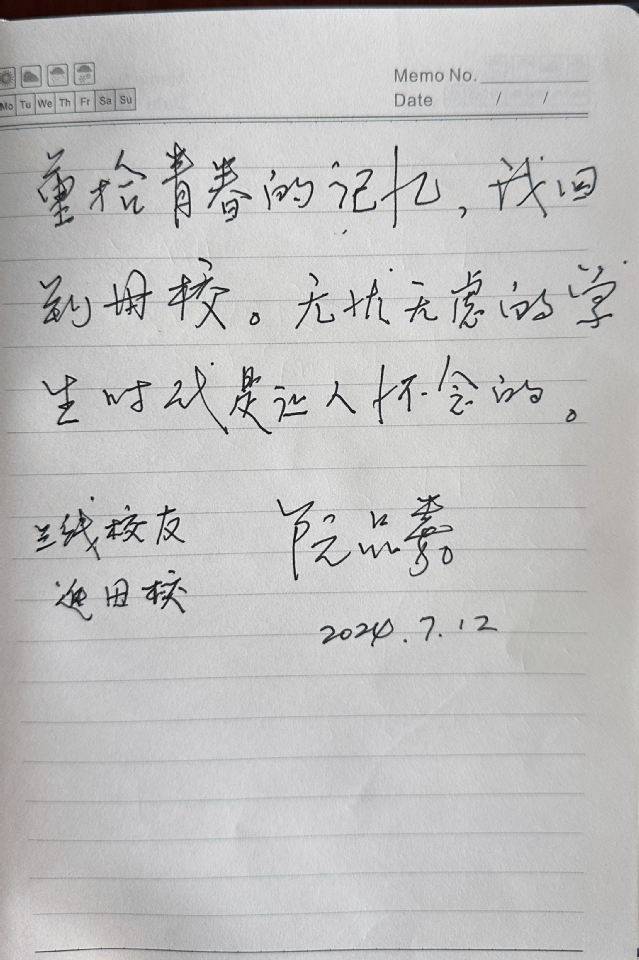 Memo No.
Mo Tu We Th Fr Sa Su
Date / /
重拾青春的记忆，我回
到母校。无忧无虑的学
生时代是让人怀念的。
兰线校友
进母校
阮品嘉
2024.7.12